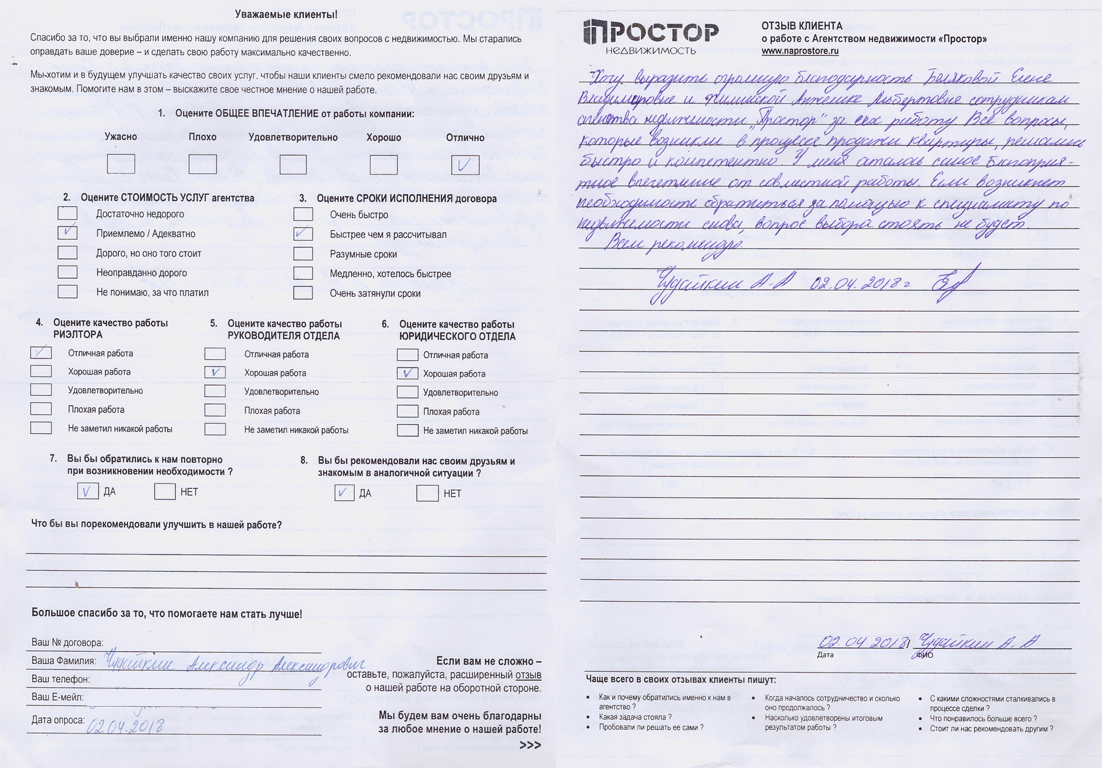 Уважаемые клиенты!
Спасибо за то, что вы выбрали именно нашу компанию для решения своих вопросов с недвижимостью. Мы старались
оправдать ваше доверие – и сделать свою работу максимально качественно.
Мы хотим и в будущем улучшать качество своих услуг, чтобы наши клиенты смело рекомендовали нас своим друзьям и
знакомым. Помогите нам в этом – выскажите свое честное мнение о нашей работе.
1. Оцените ОБЩЕЕ ВПЕЧАТЛЕНИЕ от работы компании:
Ужасно Плохо Удовлетворительно Хорошо Отлично
2. Оцените СТОИМОСТЬ УСЛУГ агентства
Достаточно недорого
Приемлемо / Адекватно
Дорого, но оно того стоит
Неоправданно дорого
Не понимаю, за что платил
3. Оцените СРОКИ ИСПОЛНЕНИЯ договора
Очень быстро
Быстрее чем я рассчитывал
Разумные сроки
Медленно, хотелось быстрее
Очень затянули сроки
4. Оцените качество работы
РИЭЛТОРА
Отличная работа
Хорошая работа
Удовлетворительно
Плохая работа
Не заметил никакой работы
5. Оцените качество работы
РУКОВОДИТЕЛЯ ОТДЕЛА
Отличная работа
Хорошая работа
Удовлетворительно
Плохая работа
Не заметил никакой работы
6. Оцените качество работы
ЮРИДИЧЕСКОГО ОТДЕЛА
Отличная работа
Хорошая работа
Удовлетворительно
Плохая работа
Не заметил никакой работы
7. Вы бы обратились к нам повторно
при возникновении необходимости ?
ДА НЕТ
8. Вы бы рекомендовали нас своим друзьям и
знакомым в аналогичной ситуации ?
ДА НЕТ
Что бы вы порекомендовали улучшить в нашей работе?
Большое спасибо за то, что помогаете нам стать лучше!
Ваш № договора:
Ваша Фамилия: Чудайкин Александр Александрович
Ваш телефон:
Ваш Е-мейл:
Дата опроса: 02.04.2018
Если вам не сложно –
оставьте, пожалуйста, расширенный отзыв
о нашей работе на оборотной стороне.
Мы будем вам очень благодарны
за любое мнение о нашей работе!
>>>
ПРОСТОР
НЕДВИЖИМОСТЬ
ОТЗЫВ КЛИЕНТА
о работе с Агентством недвижимости «Простор»
www.naprostore.ru
Хочу выразить огромную благодарность Беляковой Елене
Владимировне и Альбертовне сотрудникам
агентства недвижимости „Простор" за их работу Все вопросы,
которые возникли в процессе продажи квартиры, решались
быстро и компетентно. У меня осталось самое благоприя-
тное впечетление от совместной работы. Если возникнет
необходимости обратиться за помощью к специалисту по
недвижемости снова, вопрос выбора стоять не будет.
Всем рекомендую
Чудайкин А.А 02.04.2018г
02 04 2018 Чудайкин А.А
Дата ФИО
Чаще всего в своих отзывах клиенты пишут:
• Как и почему обратились именно к нам в
агентство ?
• Какая задача стояла ?
• Пробовали ли решать ее сами ?
• Когда началось сотрудничество и сколько
оно продолжалось ?
• Насколько удовлетворены итоговым
результатом работы ?
• С какими сложностями сталкивались в
процессе сделки ?
• Что понравилось больше всего ?
• Стоит ли нас рекомендовать другим ?